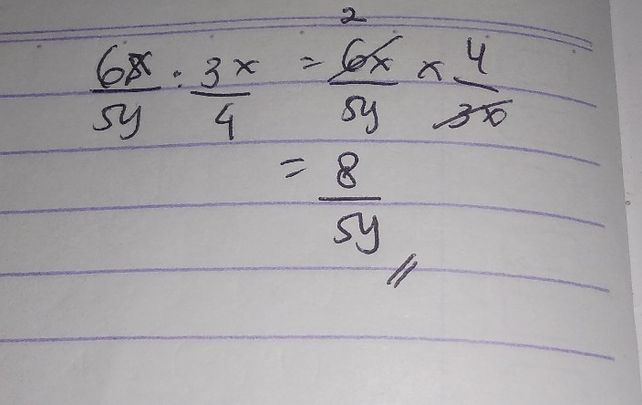 6x/5y : 3x/4 = 6x/5y × 4/3x 2
= 8/5y //